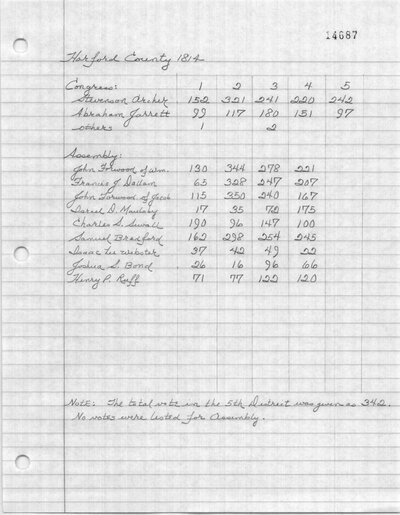 14687
Harford County 1814
Congress: 1 2 3 4 5
Stevenson Archer 152 321 241 220 242
Abraham Jarrett 99 117 180 151 97
others 1 2
Assembly:
John Forwood of Wm. 130 344 278 221
Francis J. Dallam 63 328 247 207
John Forwood of Jacob 115 350 240 167
Israel D. Maulsby 17 35 72 175
Charles S. Sewall 190 96 147 100
Samuel Bradford 162 298 254 245
Isaac Lee Webster 37 42 49 22
Joshua S. Bond 26 16 96 66
Henry P. Ruff 71 77 122 120
Note: The total vote in the 5th District was given as 342.
No votes were listed for Assembly.